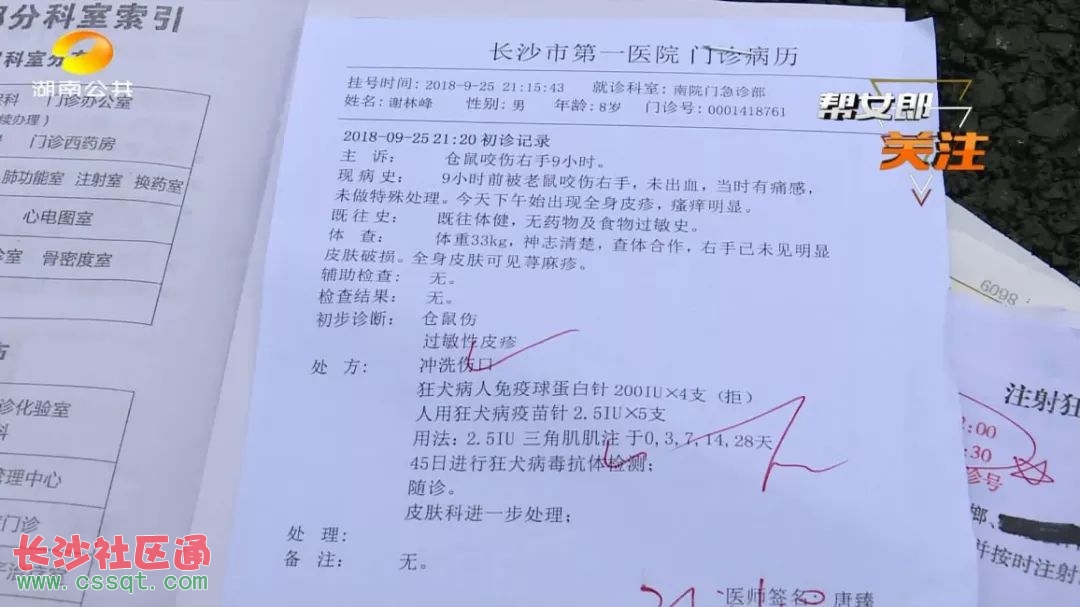 部分科室索引
科室分
湖南公共
门诊办公室
续办理）
门诊西药房
肺功能室 注射室 换药室
心电图室
骨密度室
诊化验室
管理中心
门诊
长沙社区通
www.cssqt.com
长沙市第一医院 门诊病历
挂号时间：2018-9-25 21:15:43 就诊科室：南院门急诊部
姓名：谢林峰 性别：男 年龄：8岁 门诊号：0001418761
2018-09-25 21:20 初诊记录
主 诉： 仓鼠咬伤右手9小时。
现 病 史： 9小时前被老鼠咬伤右手，未出血，当时有痛感，
未做特殊处理。今天下午始出现全身皮疹，瘙痒明显。
既 往 史： 既往体健，无药物及食物过敏史。
体 查： 体重33kg，神志清楚，查体合作，右手已未见明显
皮肤破损。全身皮肤可见荨麻疹。
辅助检查： 无。
检查结果： 无。
初步诊断： 仓鼠伤
过敏性皮疹
处 方： 冲洗伤口
狂犬病人免疫球蛋白针 200IU×4支（拒）
人用狂犬病疫苗针 2.5IU×5支
用法：2.5IU 三角肌肌注 于0,3,7,14,28天
45日进行狂犬病毒抗体检测；
随诊。
皮肤科进一步处理；
处 理：
备 注： 无。
医师签名 唐臻
帮女郎
关注
6098
注射狂
2:00
:30
诊号
并按时注射